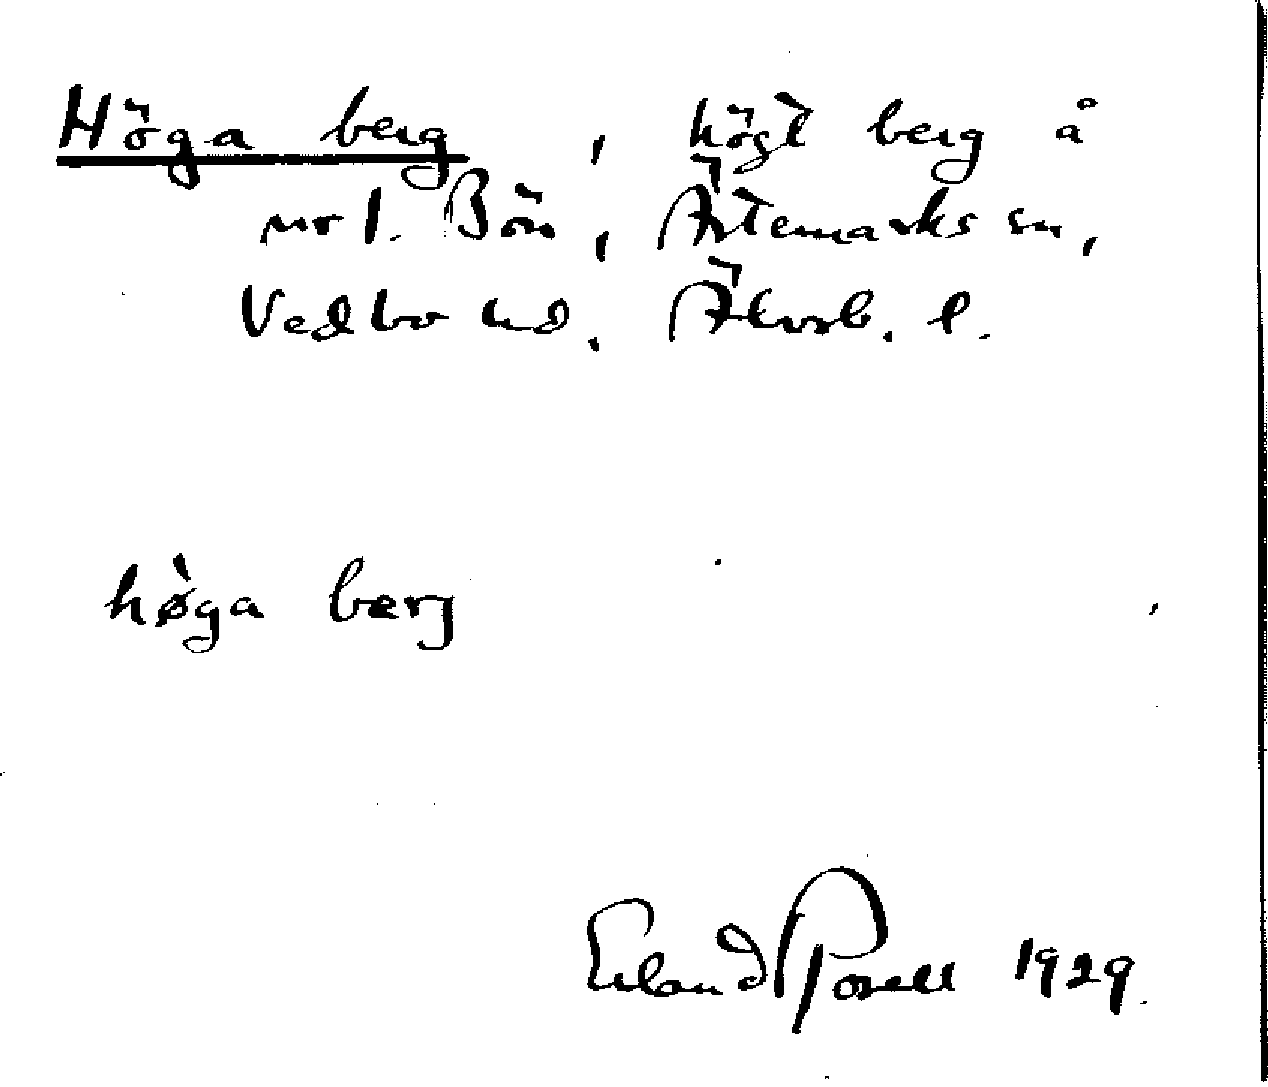 Höga berg, högt berg å
nr 1. Bön, Ärtemarks sn,
Vedbo hd. Älvsb. l.
hø̀ga bærj
Erland Rosell 1929.